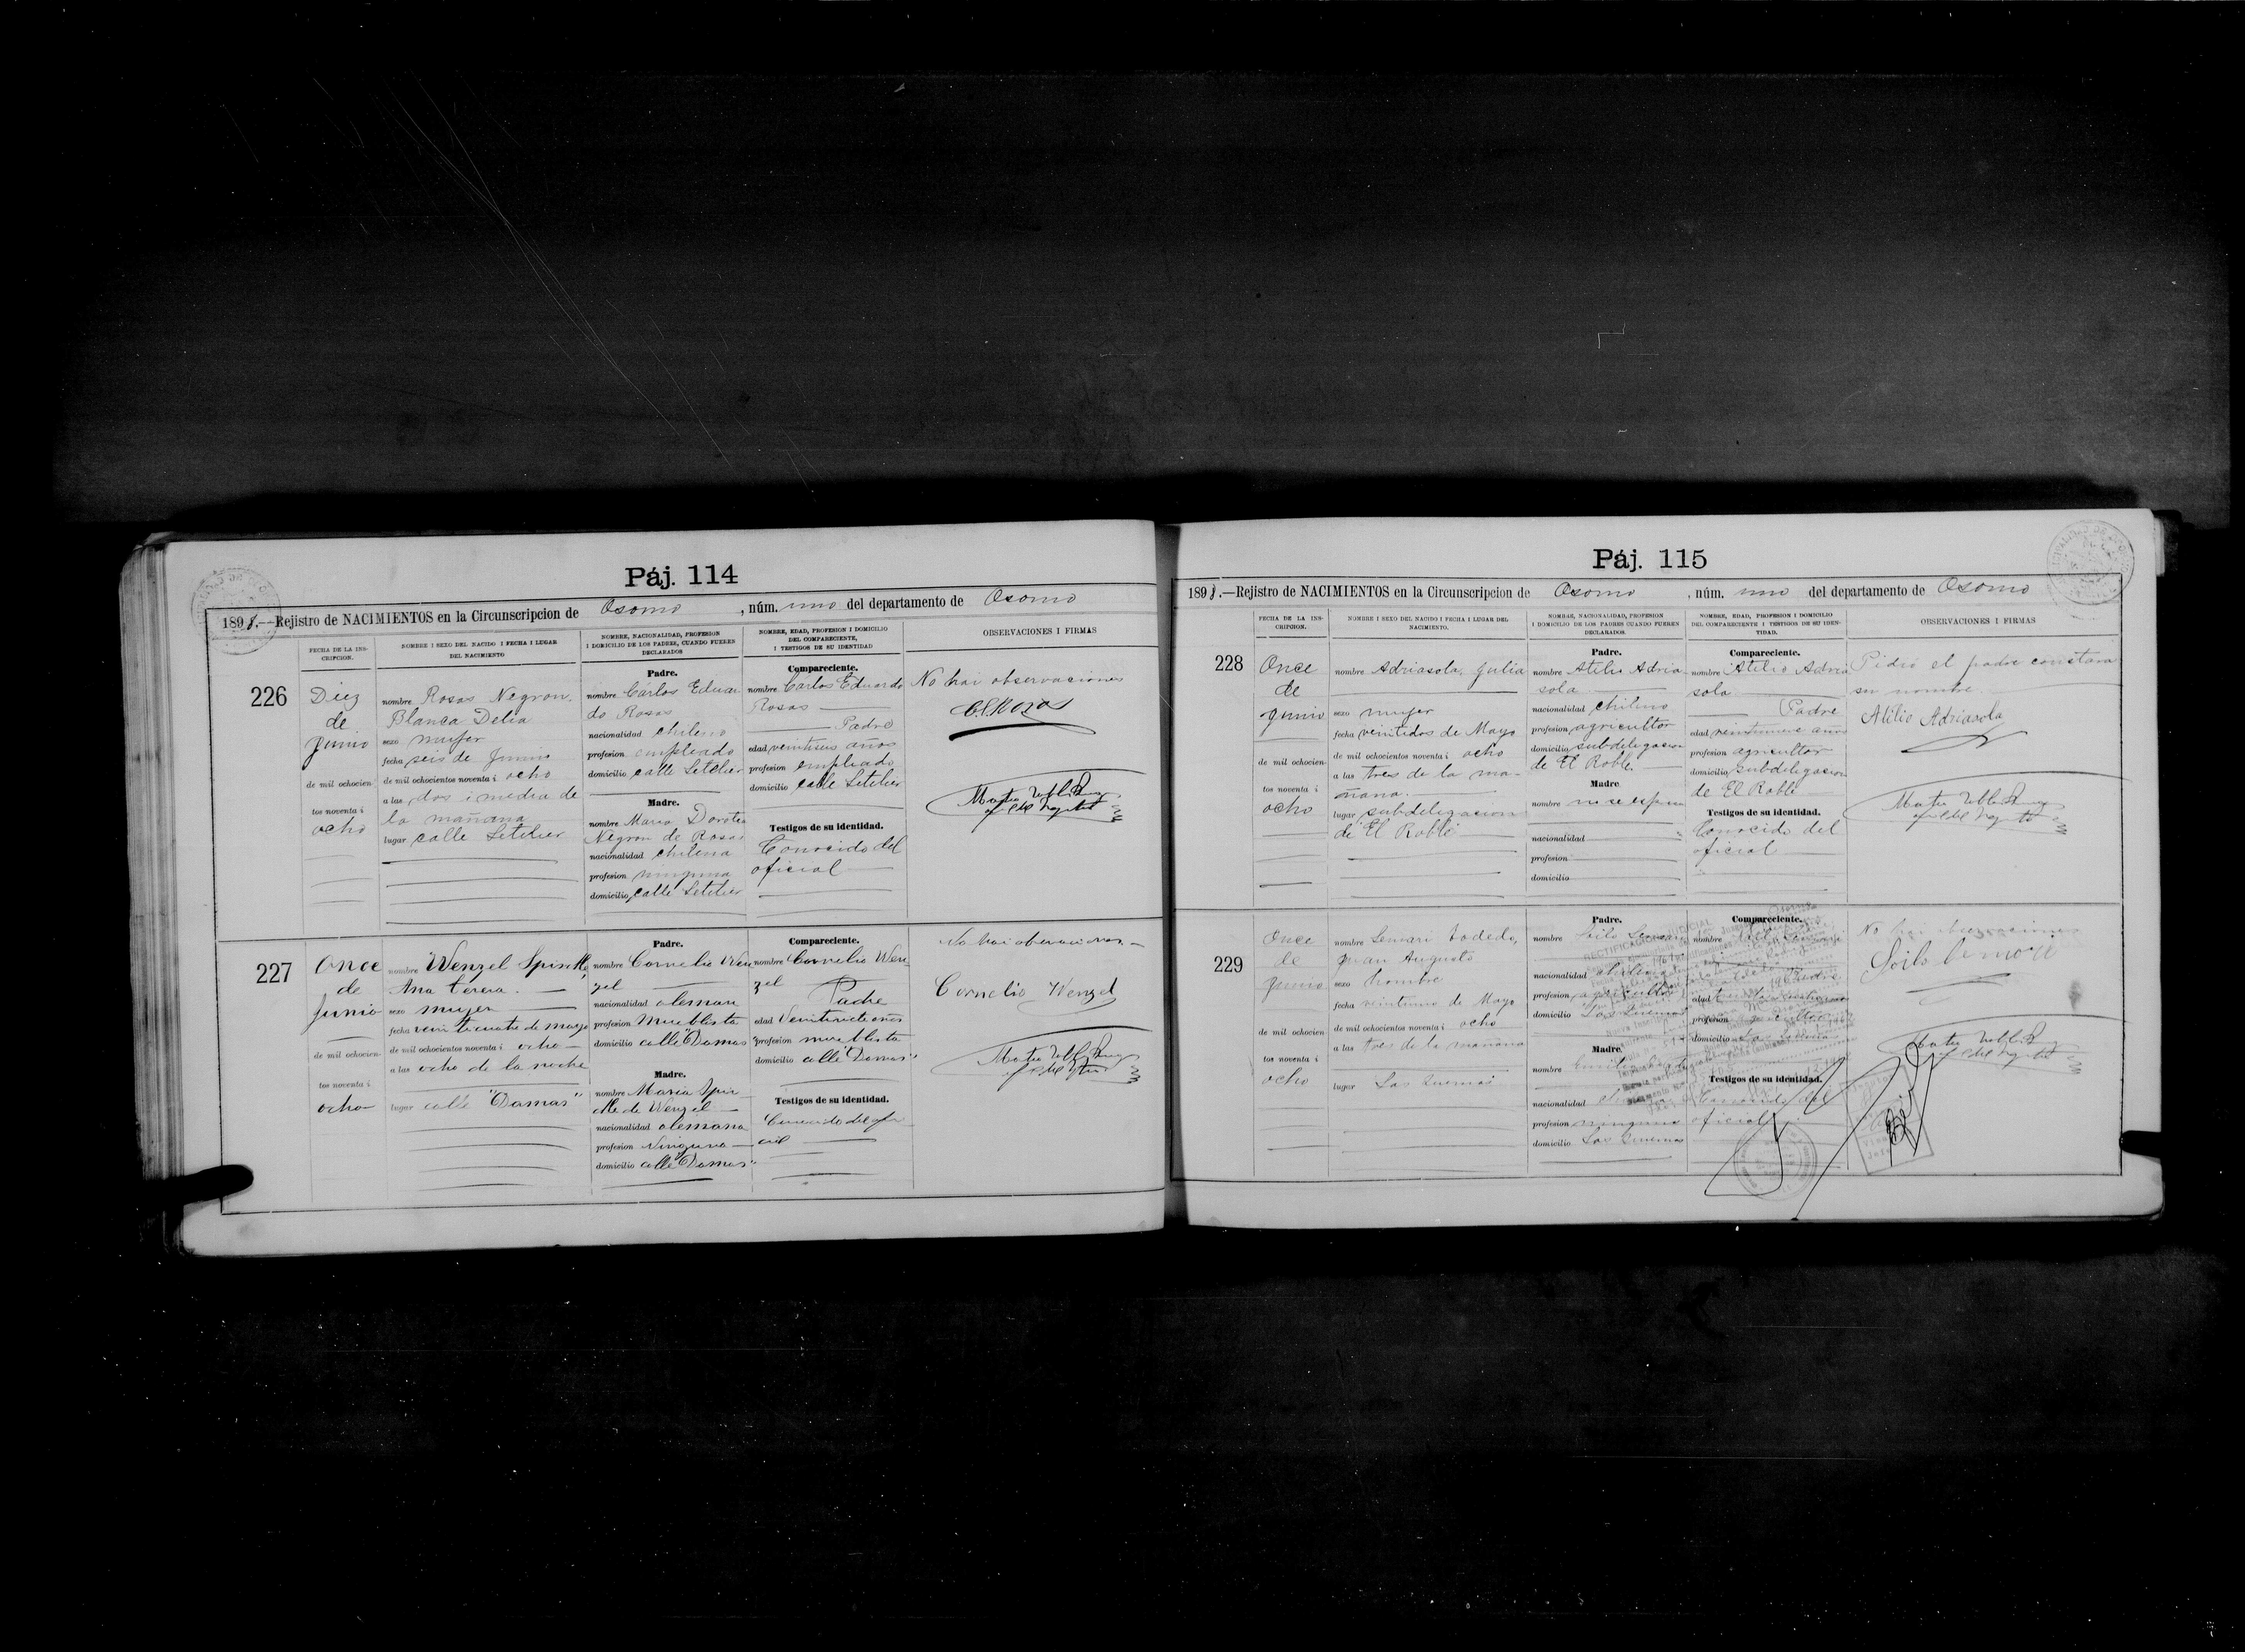 Páj. 114
1898.—Rejistro de NACIMIENTOS en la Circunscripcion de Osorno, núm. uno del departamento de Osorno
FECHA DE LA INSCRIPCION.
NOMBRE I SEXO DEL NACIDO I FECHA I LUGAR
DEL NACIMIENTO
NOMBRE, NACIONALIDAD, PROFESION
I DOMICILIO DE LOS PADRES, CUANDO FUEREN
DECLARADOS
NOMBRE, EDAD, PROFESION I DOMICILIO
DEL COMPARECIENTE,
I TESTIGOS DE SU IDENTIDAD
OBSERVACIONES I FIRMAS
226
Diez
de
Junio
de mil ochocien-
tos noventa i
ocho
nombre Rosas Negron.
Blanca Delia
sexo mujer
fecha seis de Junio
de mil ochocientos noventa i ocho
a las dos i media de
la mañana
lugar calle Letelier
Padre.
nombre Cárlos Eduar
do Rosas
nacionalidad chileno
profesion empleado
domicilio calle Letelier
Madre.
nombre Maria Dorotea
Negron de Rosas
nacionalidad chilena
profesion ninguna
domicilio calle Letelier
Compareciente.
nombre Cárlos Eduardo
Rosas
Padre
edad veintiseis años
profesion empleado
domicilio calle Letelier
Testigos de su identidad.
Conocido del
oficial
No hai observaciones
C.E. Rosas
227
Once
de
Junio
de mil ochocien-
tos noventa i
ocho
nombre Wenzel
Ana Teresa.
sexo mujer
fecha veinticuatro de mayo
de mil ochocientos noventa i ocho
a las ocho de la noche
lugar calle "Damas"
Padre.
nombre Cornelio Wen
zel
nacionalidad aleman
profesion Mueblista
domicilio calle "Damas"
Madre.
nombre Maria
de Wenzel
nacionalidad alemana
profesion Ninguna
domicilio calle "Damas"
Compareciente.
nombre Cornelio Wen
zel
Padre
edad años
profesion mueblista
domicilio calle "Damas"
Testigos de su identidad.
Conocido del ofi
cial
No hai observaciones
Cornelio Wenzel
Páj. 115
1898.—Rejistro de NACIMIENTOS en la Circunscripcion de Osorno, núm. uno del departamento de Osorno
FECHA DE LA INS-
CRIPCION.
NOMBRE I SEXO DEL NACIDO I FECHA I LUGAR DEL
NACIMIENTO.
NOMBRE, NACIONALIDAD, PROFESION
I DOMICILIO DE LOS PADRES CUANDO FUEREN
DECLARADOS.
NOMBRE, EDAD, PROFESION I DOMICILIO
DEL COMPARECIENTE I TESTIGOS DE SU IDEN-
TIDAD.
OBSERVACIONES I FIRMAS
228
Once
de
Junio
de mil ochocien-
tos noventa i
ocho
nombre Adriasola, Julia
sexo mujer
fecha veintidos de Mayo
de mil ochocientos noventa i ocho
a las tres de la ma-
ñana.
lugar subdelegacion
de "El Roble"
Padre.
nombre Atilio Adria
sola
nacionalidad chileno
profesion agricultor
domicilio subdelegacion
de El Roble.
Madre
nombre no se espresa
nacionalidad
profesion
domicilio
Compareciente.
nombre Atilio Adria
sola
Padre
edad veintinueve años
profesion agricultor
domicilio subdelegacion
de El Roble
Testigos de su identidad.
Conocido del
oficial
Pidió el padre constara
su nombre
Atilio Adriasola
229
Once
de
Junio
de mil ochocien-
tos noventa i
ocho
nombre
Juan Augusto
sexo hombre
fecha veintiuno de Mayo
de mil ochocientos noventa i ocho
a las tres de la mañana
lugar Las Quemas
Padre.
nombre
nacionalidad chileno
profesion agricultor
domicilio Las Quemas
Madre.
nombre
nacionalidad
profesion ninguna
domicilio Las Quemas
Compareciente.
nombre
Padre
edad
profesion agricultor
domicilio
Testigos de su identidad.
Conocido del
oficial
No hai observaciones
RECTIFICACION JUDICIAL